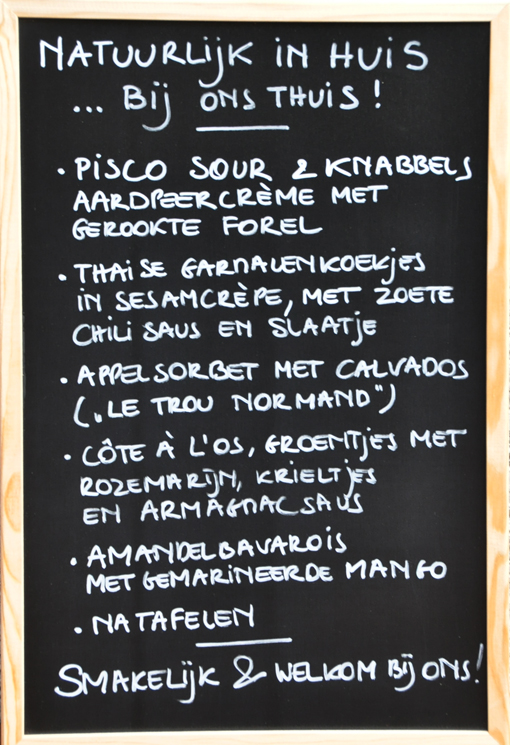 NATUURLIJK IN HUIS
... BIJ ONS THUIS!
• PISCO SOUR & KNABBELS
AARDPEERCRÈME MET
GEROOKTE FOREL
• THAISE GARNALENKOEKJES
IN SESAMCRÈPE, MET ZOETE
CHILI SAUS EN SLAATJE
• APPELSORBET MET CALVADOS
(„LE TROU NORMAND")
• CÔTE À L'OS, GROENTJES MET
ROZEMARIJN, KRIELTJES
EN ARMAGNACSAUS
• AMANDELBAVAROIS
MET GEMARINEERDE MANGO
• NATAFELEN
SMAKELIJK & WELKOM BIJ ONS!